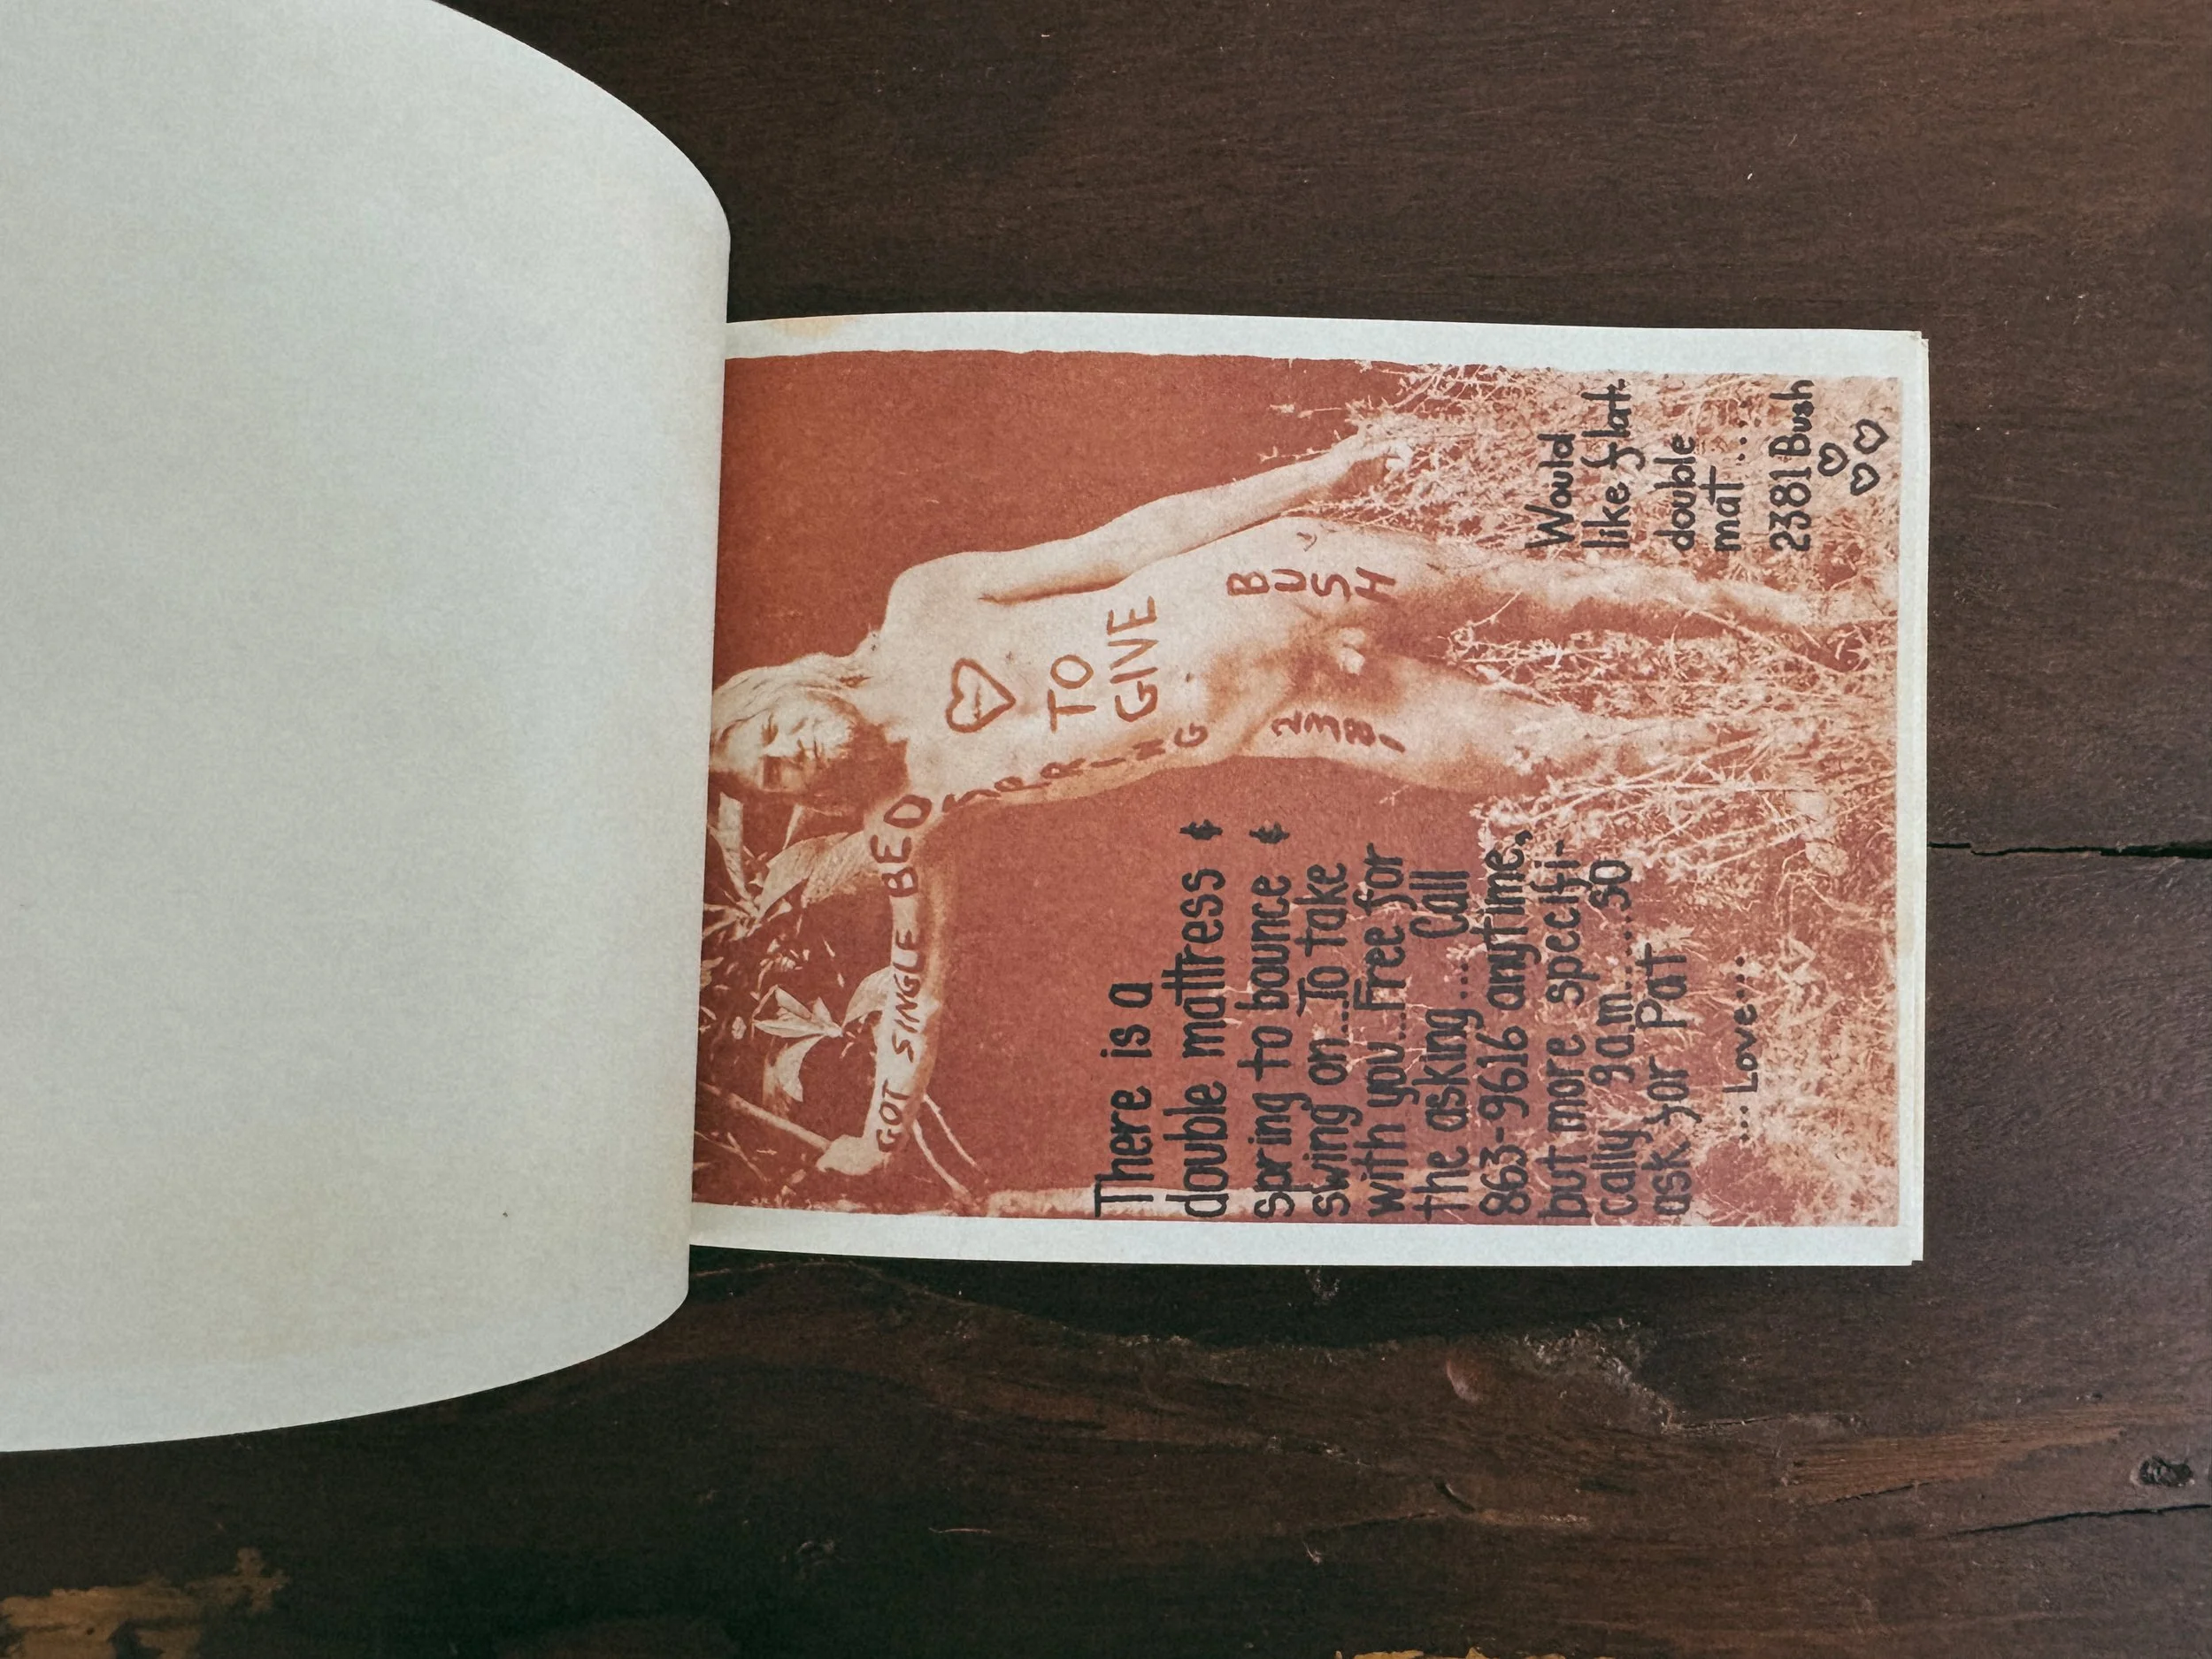 GOT SINGLE BED
SPRING
♡
TO
GIVE
2381
BUSH
There is a
double mattress &
spring to bounce &
swing on....To take
with you...Free for
the asking.... Call
863-9616 anytime,
but more specifi-
cally 9am.....so
ask for Pat
...Love....
Would
like flat
double
mat.....
2381 Bush
♡
♡♡